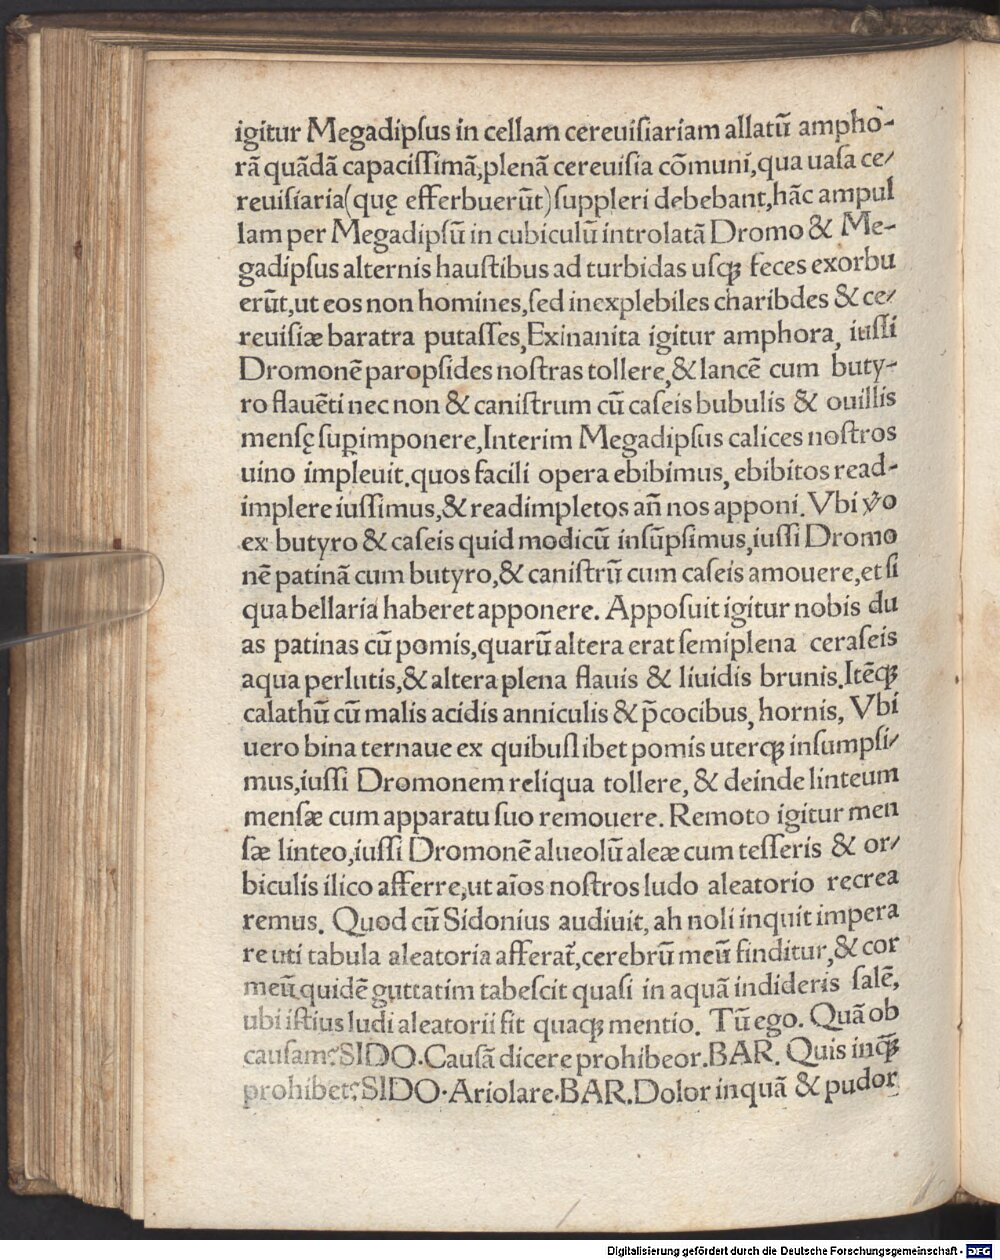 igitur Megadipſus in cellam cereuiſiariam allatū ampho-
rā quādā capaciſſimā, plenā cereuiſia cōmuni, qua uaſa ce/
reuiſiaria (quę efferbuerūt) ſuppleri debebant, hāc ampul
lam per Megadipſū in cubiculū introlatā Dromo & Me-
gadipſus alternis hauſtibus ad turbidas uſqꝫ feces exorbu
erūt, ut eos non homines, ſed inexplebiles charibdes & ce/
reuiſiæ baratra putaſſes, Exinanita igitur amphora, iuſſi
Dromonē paropſides noſtras tollere, & lancē cum buty-
ro flauēti nec non & caniſtrum cū caſeis bubulis & ouillis
menſę ſuꝑimponere, Interim Megadipſus calices noſtros
uino impleuit. quos facili opera ebibimus, ebibitos read-
implere iuſſimus, & readimpletos añ nos apponi. Vbi ꝟo
ex butyro & caſeis quid modicū inſūpſimus, iuſſi Dromo
nē patinā cum butyro, & caniſtrū cum caſeis amouere, et ſi
qua bellaria haberet apponere. Appoſuit igitur nobis du
as patinas cū pomis, quarū altera erat ſemiplena ceraſeis
aqua perlutis, & altera plena flauis & liuidis brunis. Itēqꝫ
calathū cū malis acidis anniculis & p̄cocibus, hornis, Vbi
uero bina ternaue ex quibuſlibet pomis uterqꝫ inſumpſi/
mus, iuſſi Dromonem reliqua tollere, & deinde linteum
menſæ cum apparatu ſuo remouere. Remoto igitur men
ſæ linteo, iuſſi Dromonē alueolū aleæ cum teſſeris & or/
biculis ilico afferre, ut aīos noſtros ludo aleatorio recrea
remus. Quod cū Sidonius audiuit, ah noli inquit impera
re uti tabula aleatoria afferat᷑, cerebrū meū finditur, & cor
meū quidē guttatim tabeſcit quaſi in aquā indideris ſalē,
ubi iſtius ludi aleatorii fit quaqꝫ mentio. Tū ego. Quā ob
cauſam? SIDO. Cauſā dicere prohibeor. BAR. Quis inqꝫ̄
prohibet? SIDO. Ariolare. BAR. Dolor inquā & pudor
Digitalisierung gefördert durch die Deutsche Forschungsgemeinschaft - DFG